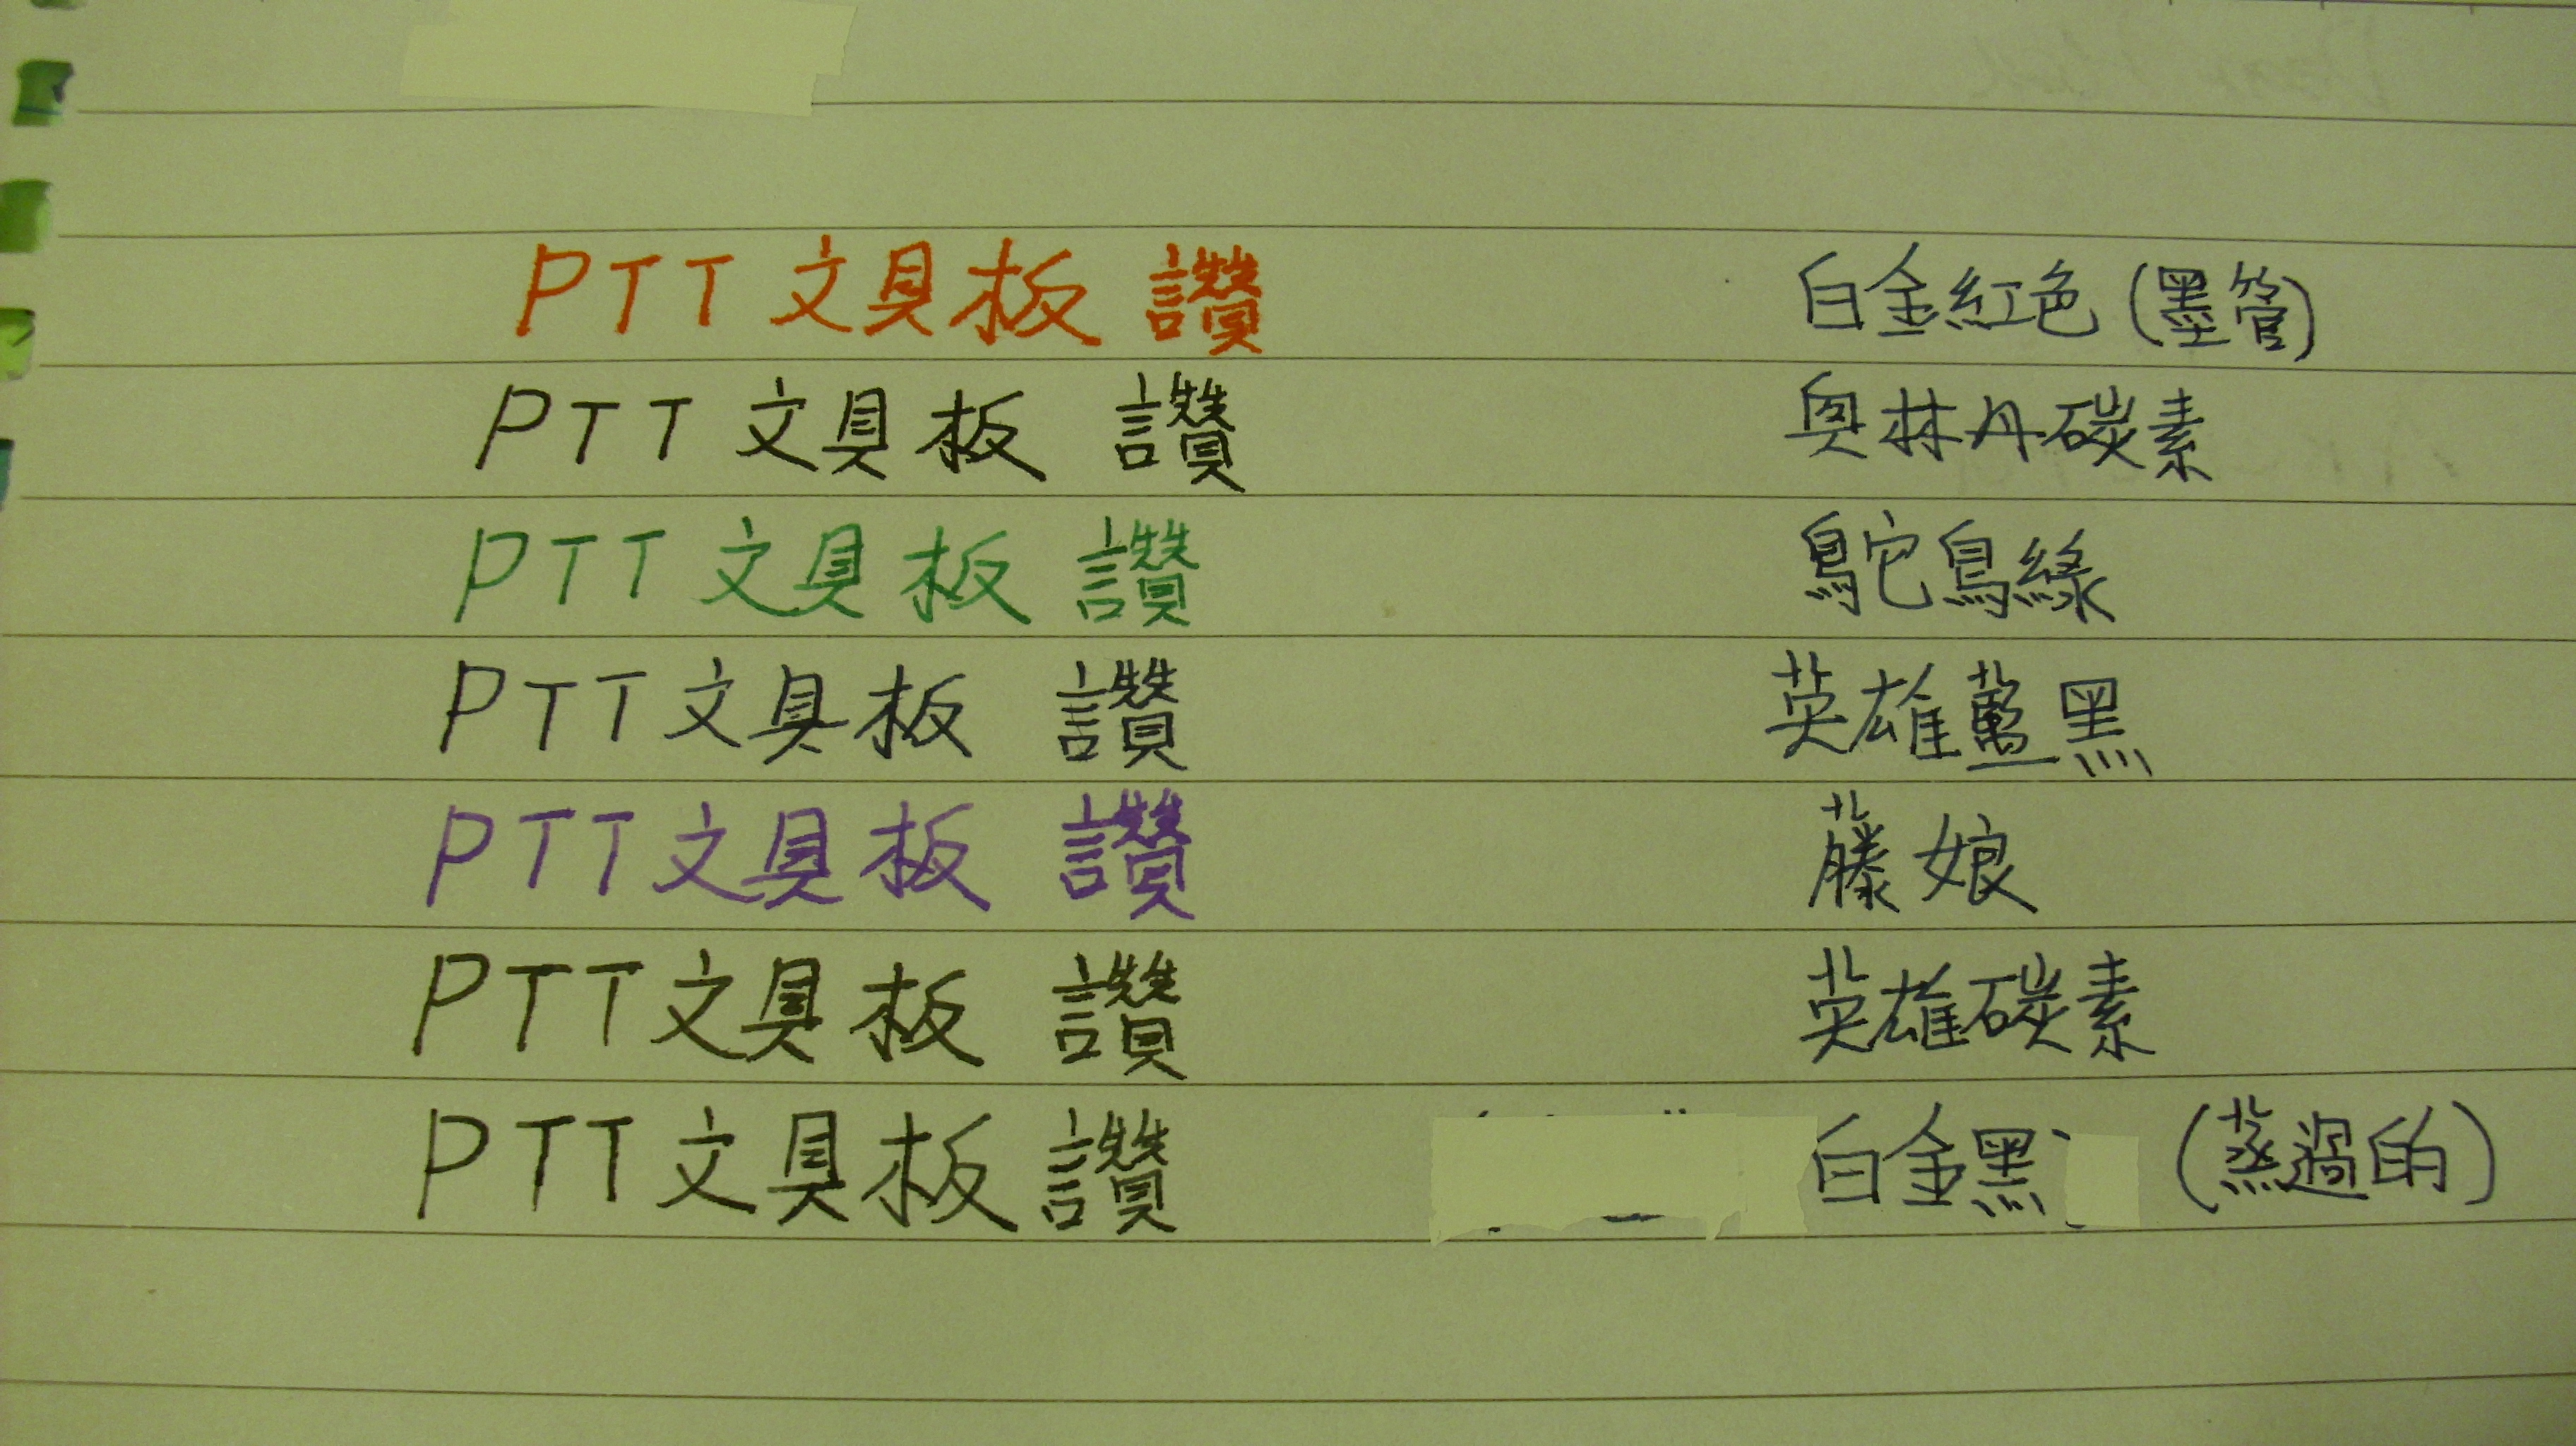 PTT 文具板 讚 白金紅色 (墨管)
PTT 文具板 讚 奧林丹碳素
PTT 文具板 讚 鴕鳥綠
PTT 文具板 讚 英雄藍黑
PTT 文具板 讚 藤娘
PTT 文具板 讚 英雄碳素
PTT 文具板 讚 白金黑 (蒸過的)